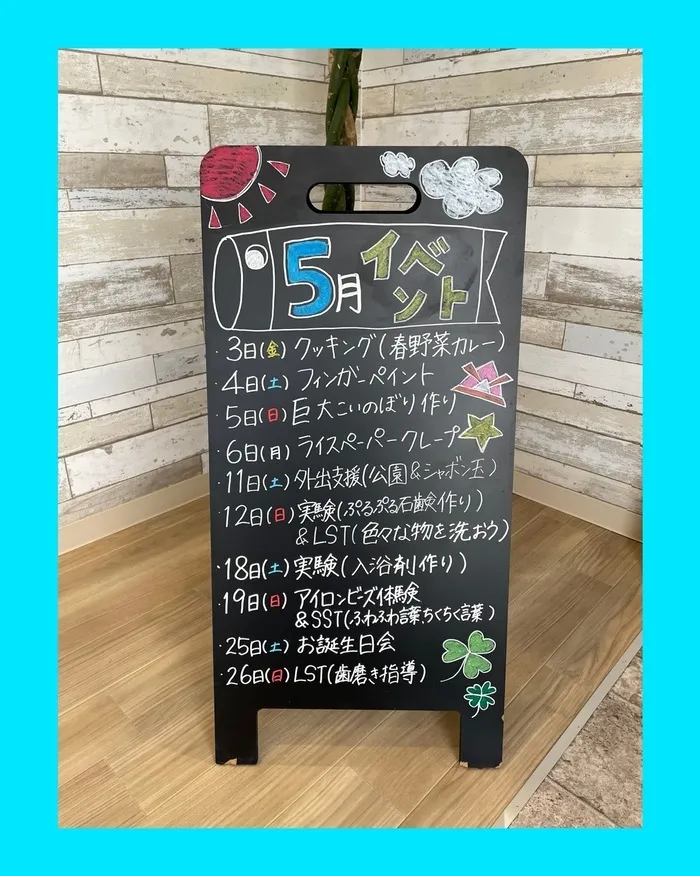 5月 イベント
・3日(金) クッキング(春野菜カレー)
・4日(土) フィンガーペイント
・5日(日) 巨大こいのぼり作り
・6日(月) ライスペーパークレープ
・11日(土) 外出支援(公園&シャボン玉)
・12日(日) 実験(ぷるぷる石鹸作り)
&LST(色々な物を洗おう)
・18日(土) 実験(入浴剤作り)
・19日(日) アイロンビーズ体験
&SST(ふわふわ言葉,ちくちく言葉)
・25日(土) お誕生日会
・26日(日) LST(歯磨き指導)